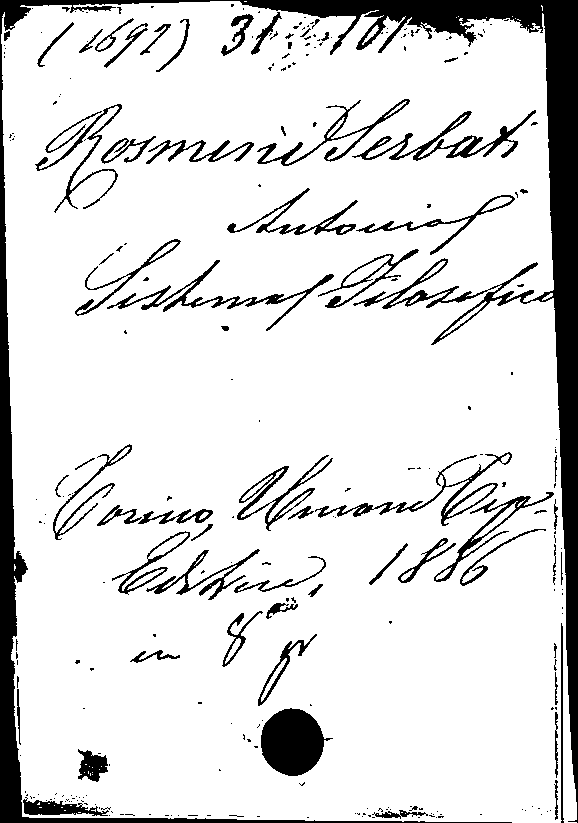 (1692) 31 101
Rosmini Serbati
Antonio
Sistema Filosofico
Torino, Unione Tip-
Editrice, 1886
in 8° gr